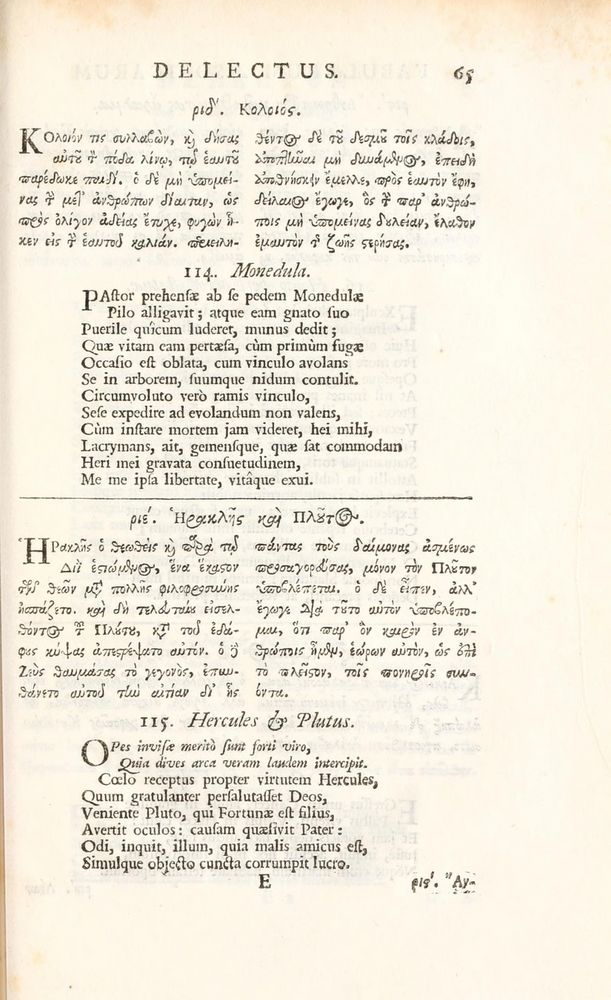 DELECTUS. 65
ριδʹ. Κολοιός.
ΚΟλοιόν τις συλλαβὼν, κὴ δήσας
αὐτοῦ τ̀ πόδα λίνῳ, τῷ ἑαυτοῦ
παρέδωκε παιδί. ὁ δὲ μὴ ὑπομεί-
νας τ̀ μετ' ἀνθρώπων δίαιταν, ὡς
πρὸς ὀλίγον ἀδείας ἔτυχε, φυγὼν ἧ-
κεν εἰς τ̀ ἑαυτοῦ καλιάν. περιειλη-
θέντος δὲ τοῦ δεσμοῦ τοῖς κλάδοις,
ἀποπτῆναι μὴ δυνάμενος, ἐπειδὴ
ἀποθνήσκειν ἔμελλε, πρὸς ἑαυτὸν ἔφη,
δείλαιος ἔγωγε, ὃς τ̀ παρ' ἀνθρώ-
ποις μὴ ὑπομείνας δουλείαν, ἔλαθον
ἐμαυτὸν τ̀ ζωῆς στερήσας.
114. Monedula.
PAstor prehensæ ab se pedem Monedulæ
Pilo alligavit; atque eam gnato suo
Puerile quîcum luderet, munus dedit;
Quæ vitam eam pertæsa, cùm primùm fugæ
Occasio est oblata, cum vinculo avolans
Se in arborem, suumque nidum contulit.
Circumvoluto verò ramis vinculo,
Sese expedire ad evolandum non valens,
Cùm instare mortem jam videret, hei mihi,
Lacrymans, ait, gemensque, quæ sat commodam
Heri mei gravata consuetudinem,
Me me ipsa libertate, vitâque exui.
ριεʹ. Ἡρακλῆς καὶ Πλοῦτος.
ἩΡακλῆς ὁ θεωθεὶς κὴ παρὰ τῷ
Διῒ ἑστιώμενος, ἕνα ἕκαστον
τῶν θεῶν μετὰ πολλῆς φιλοφροσύνης
ἠσπάζετο. καὶ δὴ τελευταῖον εἰσελ-
θόντος τ̀ Πλούτου, κατὰ τοῦ ἐδά-
φους κύψας ἀπεστρέψατο αὐτόν. ὁ δὲ
Ζεὺς θαυμάσας τὸ γεγονὸς, ἐπυν-
θάνετο αὐτοῦ τὴν αἰτίαν δι' ἧς
πάντας τοὺς δαίμονας ἀσμένως
προσαγορεύσας, μόνον τὸν Πλοῦτον
ὑποβλέπεται. ὁ δὲ εἶπεν, ἀλλ'
ἔγωγε διὰ τοῦτο αὐτὸν ὑποβλέπο-
μαι, ὅτι παρ' ὃν καιρὸν ἐν ἀν-
θρώποις ἤμην, ἑώρων αὐτὸν, ὡς ἐπὶ
τὸ πλεῖστον, τοῖς πονηροῖς συν-
όντα.
115. Hercules & Plutus.
OPes invisæ meritò sunt forti viro,
Quia dives arca veram laudem intercipit.
Cœlo receptus propter virtutem Hercules,
Quum gratulanter persalutasset Deos,
Veniente Pluto, qui Fortunæ est filius,
Avertit oculos: causam quæsivit Pater:
Odi, inquit, illum, quia malis amicus est,
Simulque objecto cuncta corrumpit lucro.
E ριςʹ. Ἀγ-